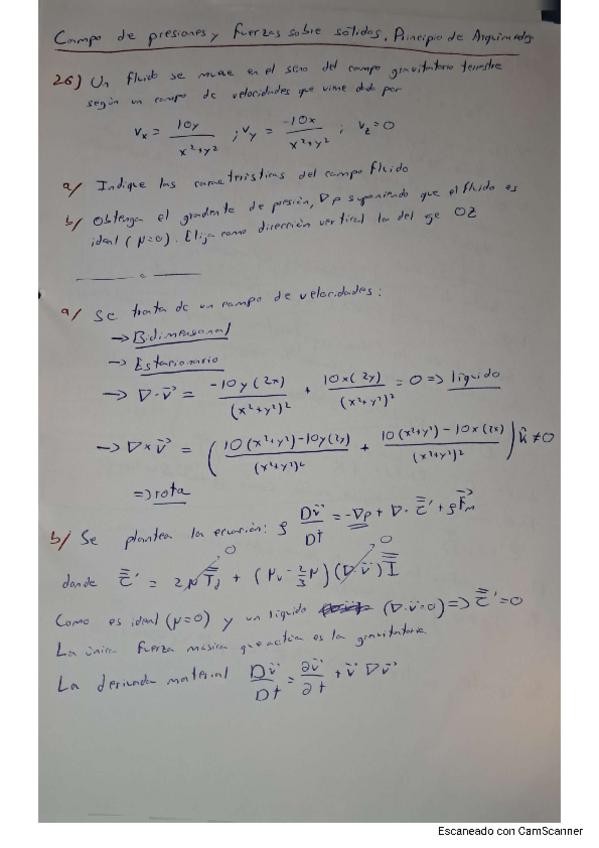 Campo de presiones y fuerzas sobre sólidos. Principio de Arquímedes
26) Un fluido se mueve en el seno del campo gravitatorio terrestre
según un campo de velocidades que viene dado por
Vx = 10y / x²+y² ; Vy = -10x / x²+y² ; Vz = 0
a) Indique las características del campo fluido
b) Obtenga el gradiente de presión, ∇p suponiendo que el fluido es
ideal (μ=0). Elija como dirección vertical la del eje OZ
a) Se trata de un campo de velocidades:
→ Bidimensional
→ Estacionario
→ ∇·v⃗ = -10y(2x) / (x²+y²)² + 10x(2y) / (x²+y²)² = 0 ⇒ líquido
→ ∇×v⃗ = ( 10(x²+y²)-10y(2y) / (x²+y²)² + 10(x²+y²)-10x(2x) / (x²+y²)² ) k̂ ≠ 0
⇒ rota
b) Se plantea la ecuación: ρ Dv⃗/Dt = -∇p + ∇·τ' + ρF⃗m
0 0
donde τ' = 2μTd + (μv - 2/3 μ)(∇·v⃗)I
Como es ideal (μ=0) y un líquido (∇·v⃗=0) ⇒ τ' = 0
La única fuerza másica que actúa es la gravitatoria.
La derivada material Dv⃗/Dt = ∂v⃗/∂t + v⃗ ∇v⃗
Escaneado con CamScanner